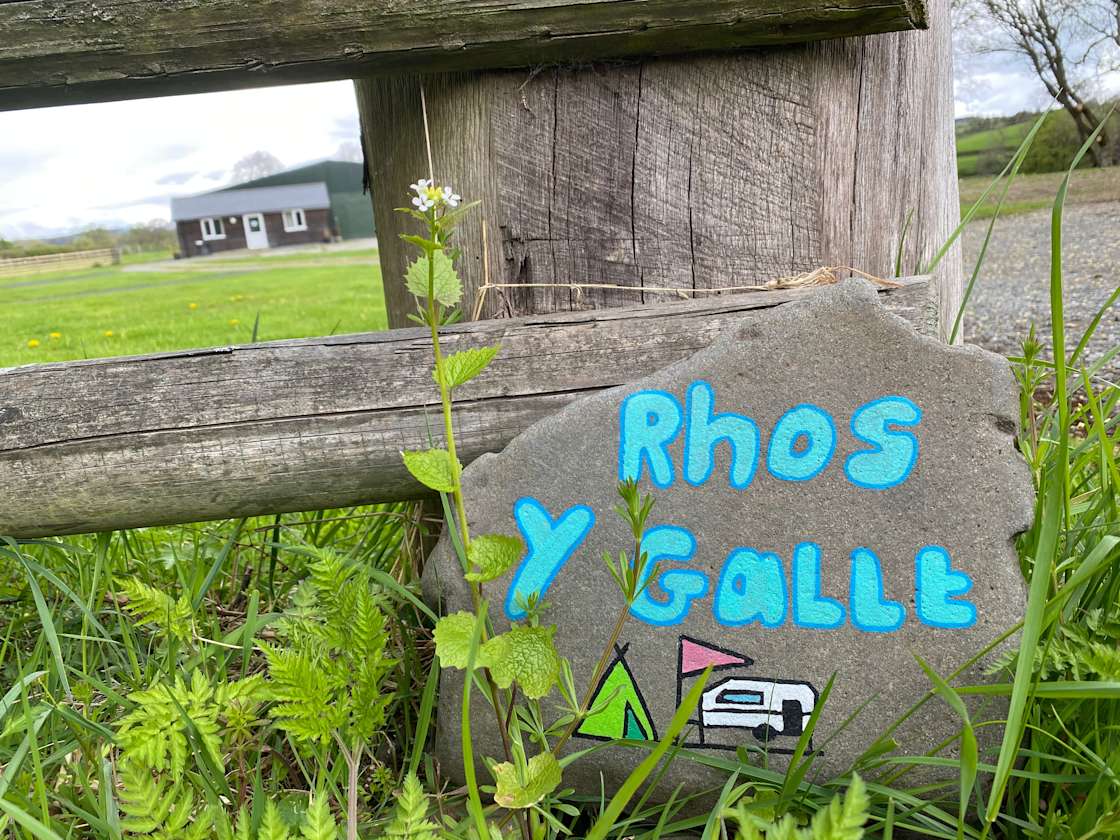 Rhos
Y Gallt